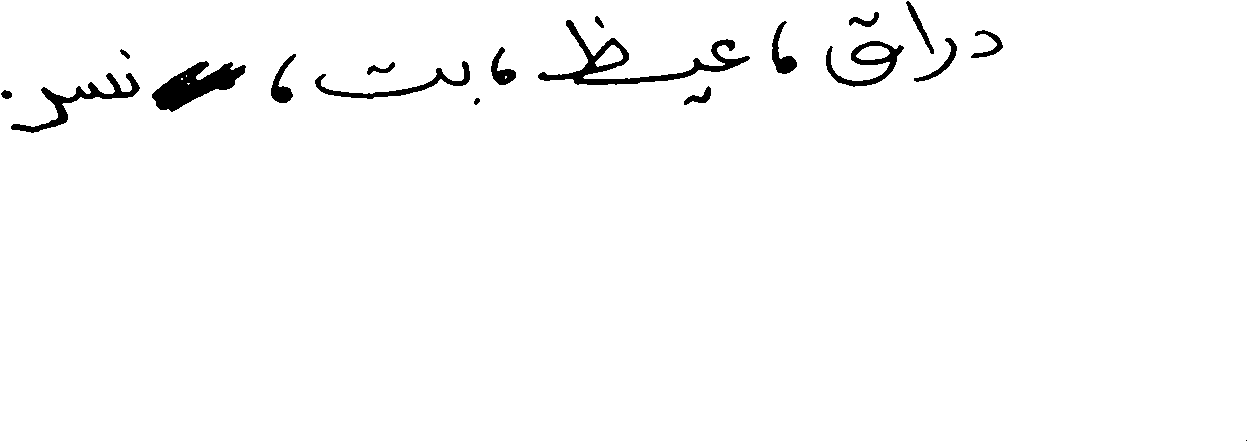 دراق ، عيظ ، بت ، ننسر.